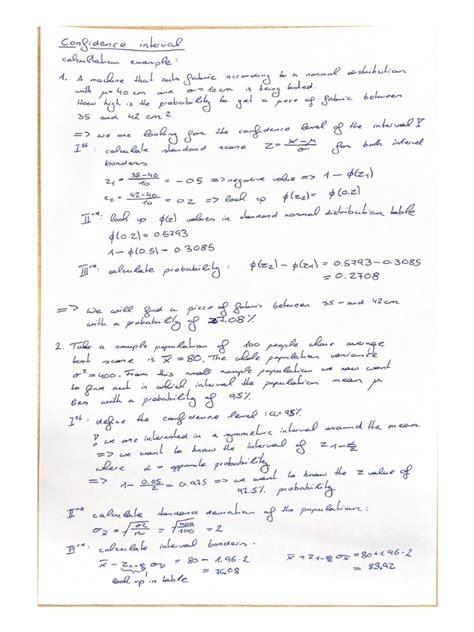 Confidence interval
calculation example:
1. A machine that cuts fabric according to a normal distribution
with μ=40 cm and σ=10 cm is being tested.
How high is the probability to get a piece of fabric between
35 and 42 cm?
=> we are looking for the confidence level of the interval!
Iˢᵗ: calculate standard score z = (x-μ)/σ for both interval
borders
z₁ = (35-40)/10 = -0.5 => negative value => 1-φ(z₁)
z₂ = (42-40)/10 = 0.2 => look up φ(0.2)
IIⁿᵈ: look up φ(z) values in standard normal distribution table
φ(0.2) = 0.5793
1-φ(0.5) = 0.3085
IIIʳᵈ: calculate probability: φ(z₂) - φ(z₁) = 0.5793-0.3085
= 0.2708
=> We will find a piece of fabric between 35 and 42cm
with a probability of 27.08%
2. Take a sample population of 100 people whose average
test score is x̄=80. The whole population variance
σ²=400. From this small sample population we now want
to find out in which interval the population mean μ
lies with a probability of 95%
Iˢᵗ: define the confidence level: α=95%
! we are interested in a symmetric interval around the mean
=> we want to know the interval of z 1-α/2
where α = opposite probability
=> 1 - 0.05/2 = 0.975 => we want to know the z value of
97.5% probability
IIⁿᵈ calculate standard deviation of the population:
σx̄ = √(σ²/n) = √(400/100) = 2
IIIʳᵈ: calculate interval borders:
x̄ - z1-α/2 σx̄ = 80 - 1.96·2
= 76.08
look up in table
x̄ + z1-α/2 σx̄ = 80+1.96·2
= 83.92